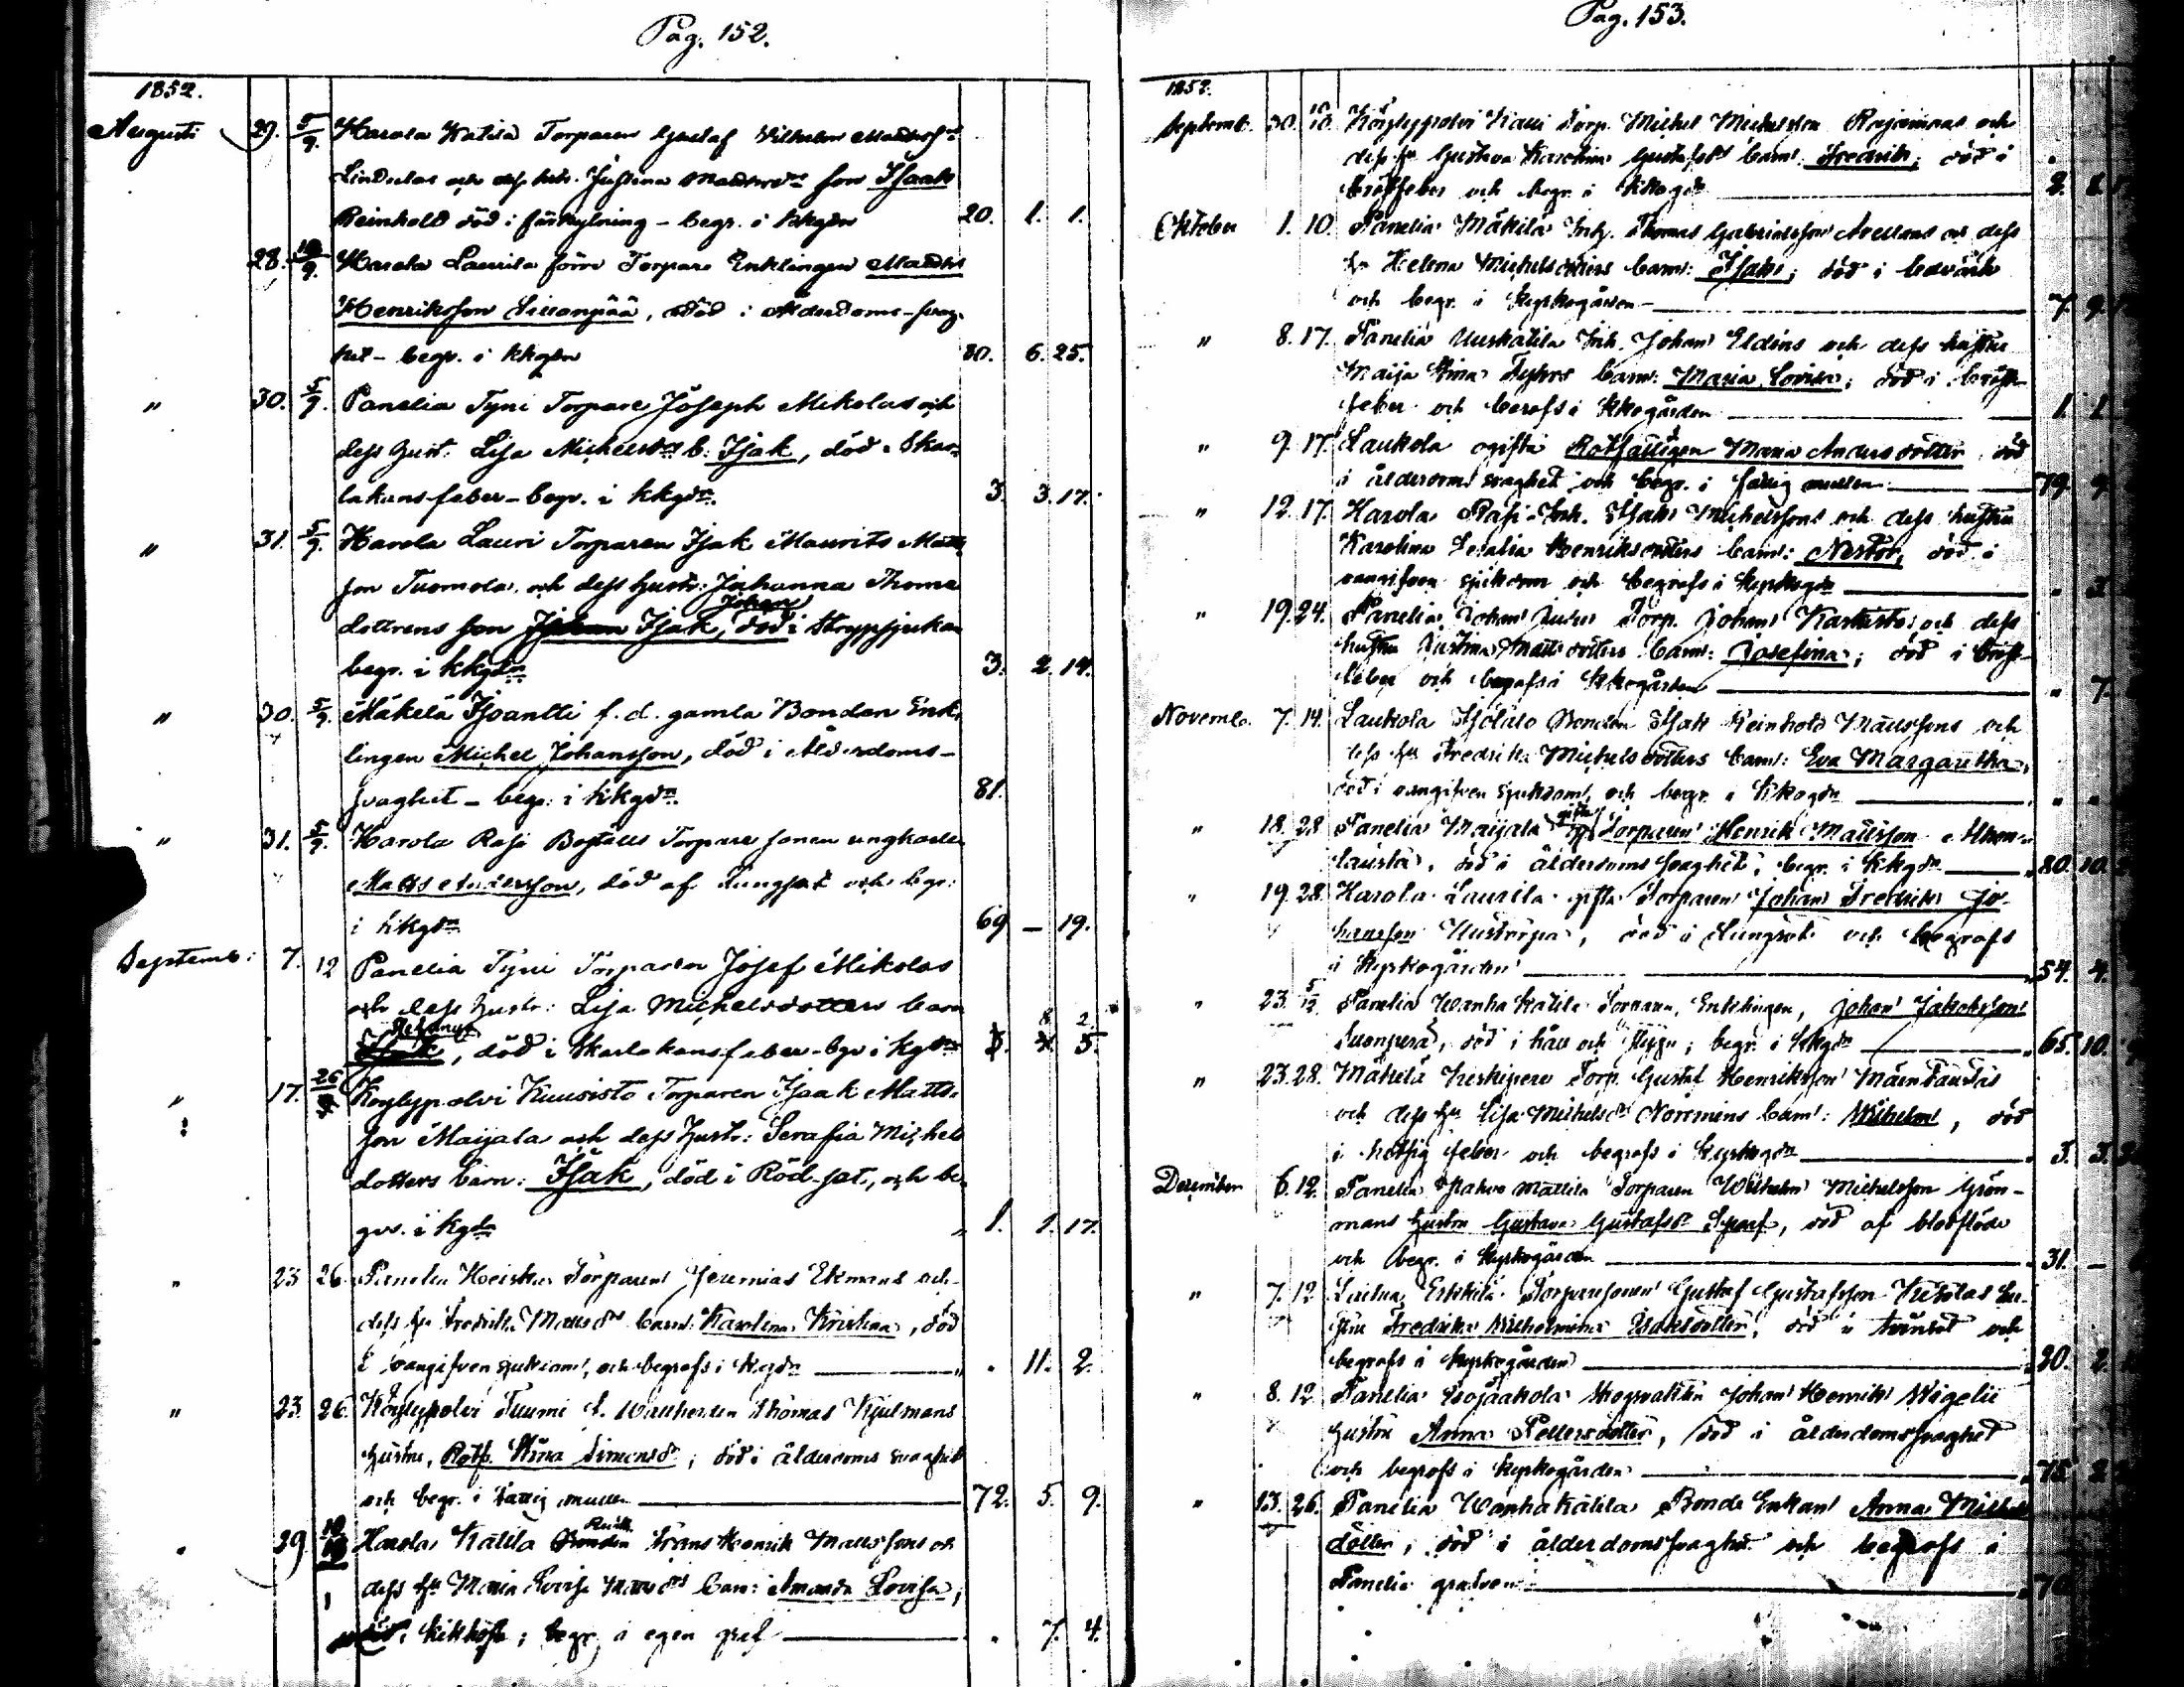 Pag. 152.
1852.
Augusti 29. 5/9. Harola Katila Torparen Gustaf Wilhelm Mattss:ns
Lindulas och dess hstr. Justina Mattsd:rs son Isaak
Reinhold död i förkylning - begr. i kkgdn 20. 1. 1.
28. 12/9. Harola Laurila förre Torpare Enklingen Matts
Henriksson Sillanpää, död i Ålderdoms-svag-
het - begr. i kkgdn 80. 6. 25.
" 30. 5/9. Panelia Tyni Torpare Joseph Mikolas och
dess hust. Lisa Michelsd:rs b. Isak, död i Skar-
lakansfeber - begr. i kkgdn. 3. 3. 17.
" 31. 5/9. Harola Lauri Torparen Isak Maurits Matts
son Tuomola och dess hustr: Johanna Thoma
dottrens son Johan Isak, död i Strypsjukan
begr. i kkgdn 3. 2. 14.
" 30. 5/9. Mäkelä Isoantti f.d. gamla Bonden Enk-
lingen Michel Johansson, död i Ålderdoms-
svaghet - begr. i kkgdn. 81.
" 31. 5/9. Harola Rasi Boställs Torpare sonen ungkarlen
Matts Andersson, död af Lungsot och begr:
i kkgdn 69 - 19.
Septemb: 7. 12 Panelia Tyni Torparen Josef Mikolas
och dess hustr: Lisa Michelsdotters barn
, död i Skarlakansfeber - bgr i kgdn 8 2
" 17. 26/9 Köylypolvi Kuusisto Torparen Isaak Matts-
son Maijala och dess hustr: Serafia Michels
dotters barn: Isak, död i Röd-sot, och be-
grv. i kgdn 1. 1. 17.
" 23 26. Panelia Heiska Torparens Jeremias Ekmans och
dess hu Fredrika Mattsdrs barn: Karolina Kristina, död
i oangifven sjukdom, och begrofs i kkgdn " 11. 2.
" 23. 26. Köylypolvi Tuumi f. Thomas Hjulmans
hustru, Rotf. Stina Simonsdr; död i ålderdoms svaghet
och begr. i fattig mullen 72. 5. 9.
" 29 10/10 Harola Katila Bonden Frans Henrik Mattssons och
dess hu Maria Lovisa Mattsdrs barn: Amanda Lovisa,
död i Kikhosta; begr. i egen graf " 7. 4.
Pag. 153.
1852.
Septemb. 30. 10/10. Köylypolvi Kaui Torp. Michel Michelsson Rajamaas och
dess hu Gustava Karolina Gustafsdrs barn: Fredrik; död i
bröstfeber och begr. i Kkogdn 2. 8
Oktober 1. 10. Panelia Mäkilä Inh. Thomas Gabrielsson Avellans och dess
hu Helena Michelsdotters barn: Isak; död i benvärk
och begr. i Kyrkogården 7. 9.
" 8. 17. Panelia Uuskatila Inh. Johan Eldéns och dess hustru
Maija Stina Fyhrs barn: Maria Lovisa; död i bröst-
feber och begrofs i Kkogården 1. 1
" 9. 17. Laukola ogifta Rotfattigen Maria Andersdotter död
i ålderdoms svaghet och begr. i fattig mullen 79. 9.
" 12. 17. Harola Rasi Inh. Isak Michelssons och dess hustru
Karolina Henriksdotters barn: Nestor, död i
oangifven sjukdom och begrofs i Kyrkogdn " 3
" 19. 24. Panelia Johan Torp. Johan Karhistos och dess
hustru Justina Mattsdotters barn: Josefina; död i bröst-
feber och begrofs i Kkogården " 7.
Novemb. 7. 14. Laukola Bonden Isak Reinhold Mattssons och
dess hu Fredrika Michelsdotters barn: Eva Margaretha,
död i oangifven sjukdom, och begr. i Kkogdn " "
" 18. 28. Panelia Maijala gifte Torparen Henrik Mattsson
, död i ålderdoms svaghet; begr. i Kkgdn 80. 10.
" 19. 28. Harola Laurila gifte Torparen Johan Fredrik Jo-
hansson Uustorpa, död i Lungsot och begrofs
i Kyrkogården 54. 4.
" 23. 5/12. Panelia Wanhakatila Torparen, Enklingen, Johan Jakobsson
Suonperä, död i håll och stygn; begr. i Kkgdn 65. 10.
" 23. 28. Mäkelä Keskipere Torp. Gustaf Henriksson Mäentaustas
och dess hu Lisa Michelsdr Norrmens barn: Wilhelm, död
i hetsig feber och begrofs i Kyrkogdn 3. 3.
December 6. 12. Panelia Mattila Torparen Wilhelm Michelsson Grön-
mans hustru Gustava Gustafsdr Sparf, död af blodflöde
och begr. i Kyrkogården 31. -
" 7. 12 Eskilä Torparesonen Gustaf Gustafsson Ketolas hu-
stru Fredrika Wilhelmina Isaksdotter, död i tvinsot och
begrofs i Kyrkogården 30. 2.
" 8. 12 Panelia Isojaakola Skogvaktaren Johan Henrik Wigelii
hustru Anna Pettersdotter, död i ålderdomssvaghet
och begrofs i Kyrkogården 75. 2
" 13. 26. Panelia Wanhakatila Bonde Enkan Anna Michels
dotter, död i ålderdomssvaghet och begrofs i
Panelia grafven